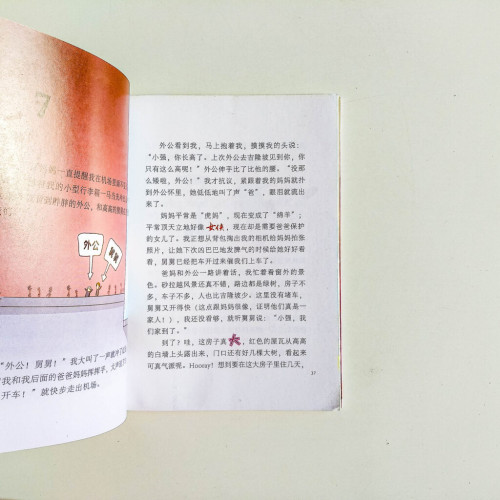 7
妈一直提醒我在机场里面不
我的小型行李箱一马当先
到胖胖的外公，和高高的舅舅
外公
舅舅
“外公！舅舅！”我大叫了一声就
我和我后面的爸爸妈妈挥挥手，大声
开车！”就快步走出机场。
外公看到我，马上抱着我，摸摸我的头说：
“小强，你长高了。上次外公去吉隆坡见到你，你
只有这么高呢！”外公伸手比了比他的腰。“没那
么矮啦，外公！”我才抗议，紧跟着我的妈妈就扑
到外公怀里，她低低地叫了声“爸”，眼泪就流出
来了。
妈妈平常是“虎妈”，现在变成了“绵羊”；
平常顶天立地好像女侠，现在却是需要爸爸保护
的女儿了。我正想从背包掏出我的相机给妈妈拍张
照片，让她下次的巴巴地发脾气的时候给她好好看
看，舅舅已经把车开过来催我们上车了。
爸妈和外公一路讲着话，我忙着看窗外的景
色。砂拉越风景还真不错，路边都是绿树，房子不
多，车子不多，人也比吉隆坡少。这里没有堵车，
舅舅又开得快（这点跟妈妈很像，证明他们真是一
家人！），我还没看够，就听舅舅说：“小强，我
们家到了。”
到了？哇，这房子真大，红色的屋瓦从高高
的白墙上头露出来，门口还有好几棵大树，看起来
可真气派呢。Hooray！想到要在这大房子里住几天，